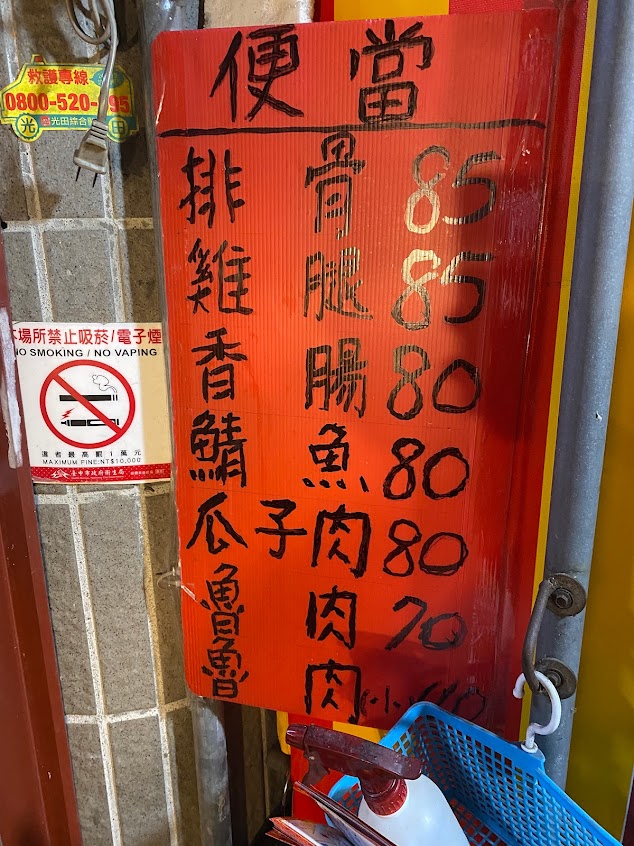 便當
排骨 85
雞腿 85
香腸 80
鯖魚 80
瓜子肉 80
魯肉 70
魯肉(小)
救護專線
0800-520-
光田綜合
光 田
本場所禁止吸菸/電子煙
NO SMOKING / NO VAPING
違者最高罰1萬元
MAXIMUM FINE:NT$10,000
臺中市政府衛生局